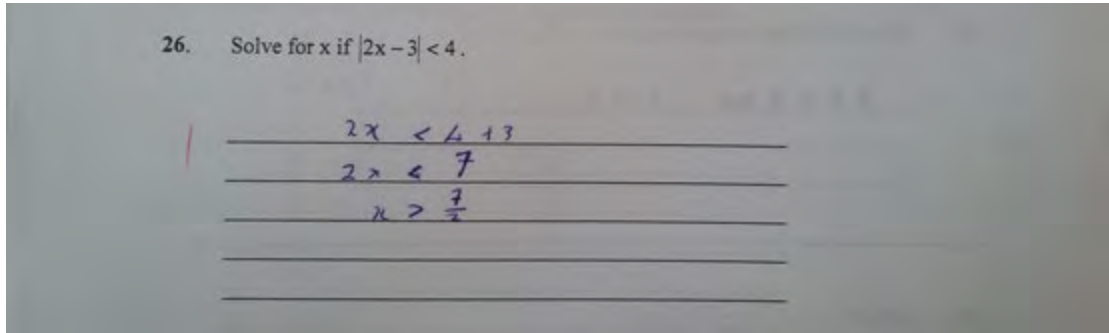 26. Solve for x if |2x – 3| < 4.
2x < 4 + 3
2x < 7
x > 7/2